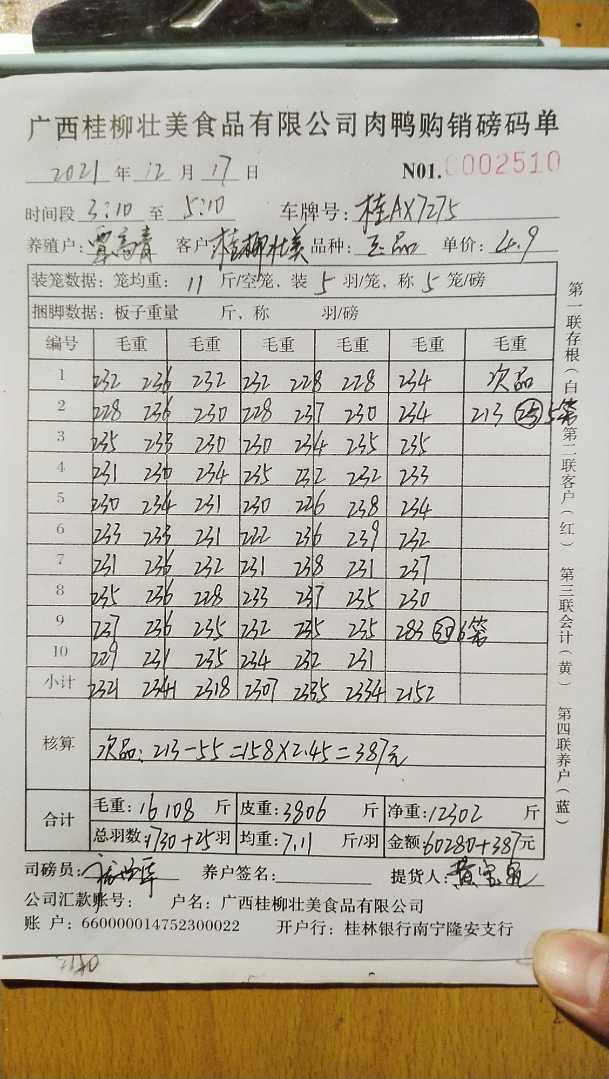 广西桂柳壮美食品有限公司肉鸭购销磅码单
2021 年 12 月 17 日 N01. 0002510
时间段 3:10 至 5:10 车牌号: 桂AX7275
养殖户: 覃高青 客户 桂柳壮美 品种: 正品 单价: 4.9
装笼数据: 笼均重: 11 斤/空笼, 装 5 羽/笼, 称 5 笼/磅
捆脚数据: 板子重量 斤, 称 羽/磅
编号 毛重 毛重 毛重 毛重 毛重 毛重
1 232 236 232 232 228 228 234 次品
2 228 236 230 228 237 230 234 213 25 5笼
3 235 233 230 230 234 235 235
4 231 230 234 235 232 232 233
5 230 234 231 230 226 238 234
6 233 233 231 222 236 239 232
7 231 236 232 231 238 231 237
8 235 236 228 233 237 235 230
9 237 236 235 232 235 235 283 30 6笼
10 229 231 235 234 232 231
小计 2321 2341 2318 2307 2335 2334 2152
核算 次品: 213-55=158×2.45=387元
合计 毛重: 16108 斤 皮重: 3806 斤 净重: 12302 斤
总羽数: 1730+25 羽 均重: 7.11 斤/羽 金额: 60280+387 元
司磅员: 养户签名: 提货人: 黄宝
公司汇款账号: 户名: 广西桂柳壮美食品有限公司
账 户: 660000014752300022 开户行: 桂林银行南宁隆安支行
第一联存根(白)
第二联客户(红)
第三联会计(黄)
第四联养户(蓝)